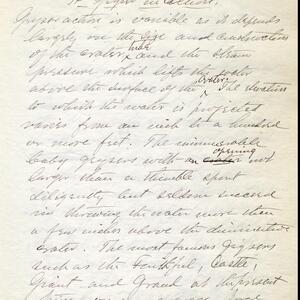 A Geyser in action.
Geyser action is variable as it depends
largely on the size and construction
of the crater, tube and the steam
pressure which lifts the water
above the surface of the crater. The elevation
to which the water is projected
varies from an inch to a hundred
or more feet. The innumerable
baby geysers with an opening not
larger than a thimble spout
diligently but seldom succeed
in throwing the water more than
a few inches above the diminutive
crater. The most famous Geysers
such as the Faithful, Castle,
Giant and Grand at the present